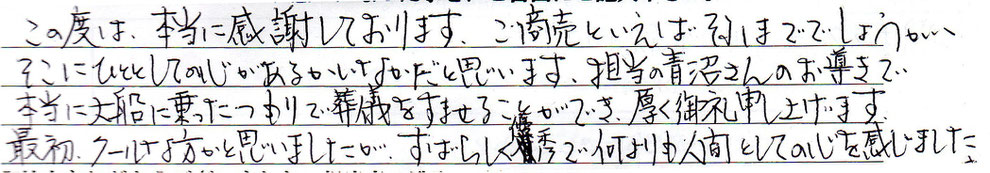 この度は、本当に感謝しております、ご商売といえばそれまででしょうが、
そこにひととしての心があるかいなかだと思います、担当の青沼さんのお導きで
本当に大船に乗ったつもりで葬儀をすませることができ、厚く御礼申し上げます
最初、クールな方かと思いましたが、すばらしく優秀で何よりも人間としての心を感じました